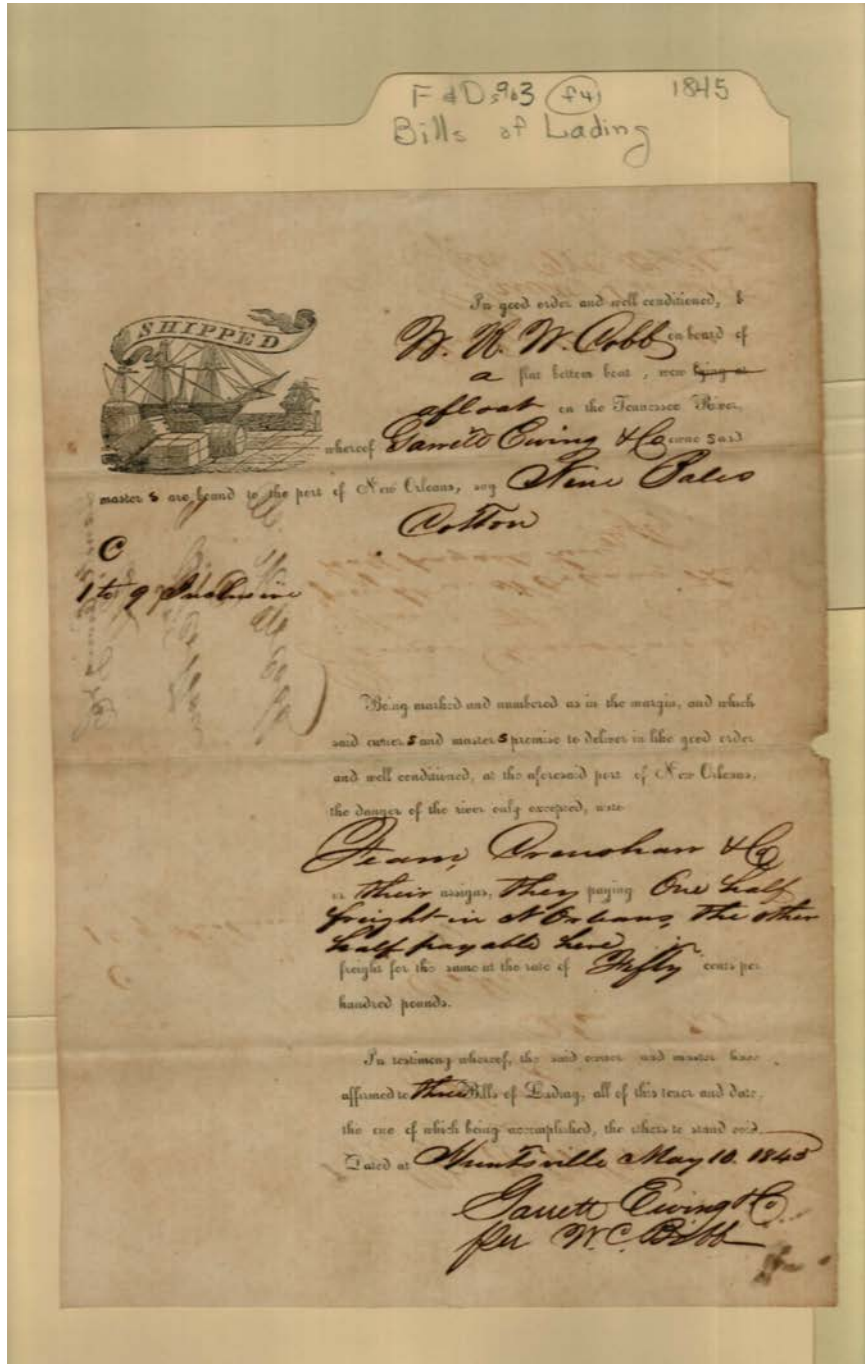 F & D 1845
Bills of Lading
SHIPPED
In good order and well conditioned, b
W. H. W. Cobb on board of
a flat bottom boat, now lying at
afloat on the Tennessee River,
whereof Garrett Ewing & Co owne s and
master s are bound to the port of New Orleans, say Nine Bales
Cotton
C
1 to 9 Inclusive
Being marked and numbered as in the margin, and which
said owner s and master s promise to deliver in like good order
and well conditioned, at the aforesaid port of New Orleans,
the danger of the river only excepted, unto
Crenshaw & Co
or their assigns, they paying One half
freight in N Orleans, the other
half payable here
freight for the same at the rate of Fifty cents per
hundred pounds.
In testimony whereof, the said owner and master have
affirmed to three Bills of Lading, all of this tenor and date,
the one of which being accomplished, the others to stand void.
Dated at Huntsville May 10. 1845
Garrett Ewing & Co
per W. C. Bibb